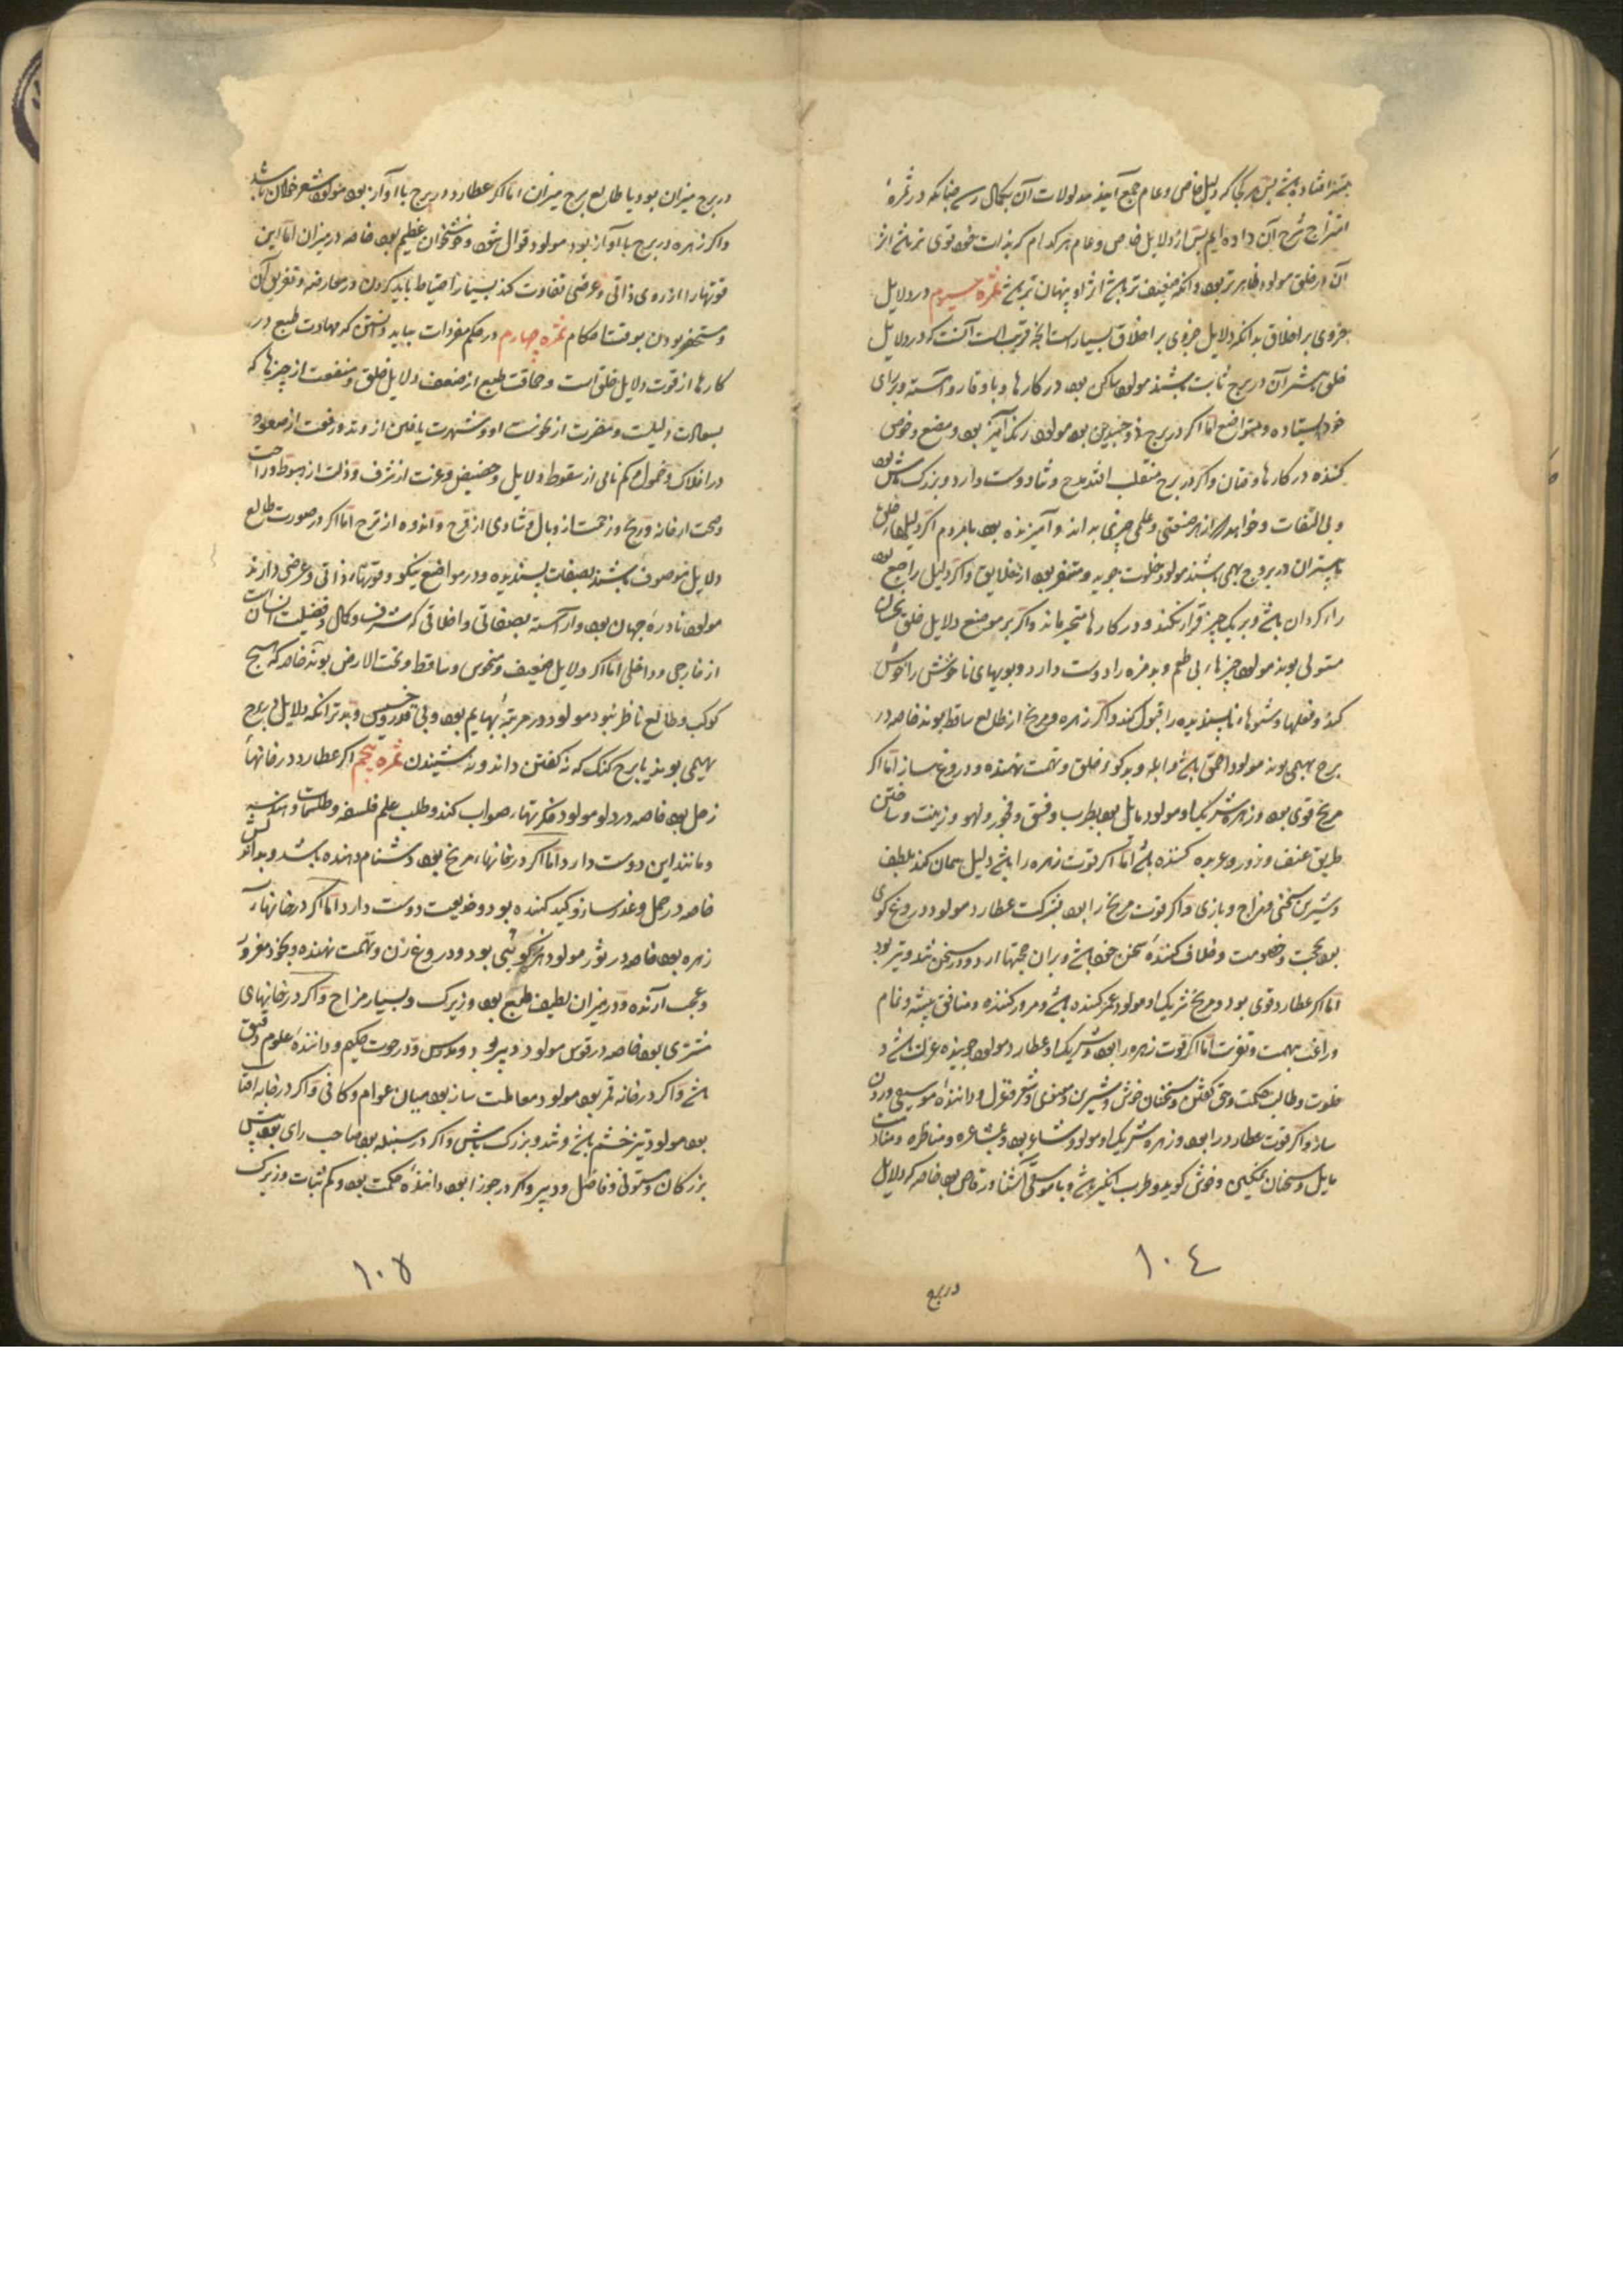 امتزاج شرح آن داده ایم پس از دلایل خاص و عام هر کدام که بذات خود قوی تر باشد اثر
آن در خلق مولود ظاهرتر بود و آنکه ضعیف تر باشد اثر او پنهان تر باشد ثمره سیوم در دلایل
جزوی بر اخلاق بدانکه دلایل جزوی بر اخلاق بسیارست آنچه قریب است آنست که در دلایل
خلق بیشتر آن در برج ثابت باشند مولود ساکن بود در کارها و با وقار و آهسته و برای
خود ایستاده و متواضع اما اگر در برج ذو جسدین بود مولود رنک آمیز بود و
کننده در کارها و فتان و اگر در برج منقلب افتد مدح و ثنا دوست دارد و بزرک منش بود
و بی التفات و خواهد که از هر صنعتی و علمی چیزی بداند و آمیزنده بود با مردم اگر دلیلهاء خلق
یا بیشتر آن در بروج بهیمی باشند مولود خلوت جوید و متنفر بود از خلایق و اگر دلیل راجع بود
رای کردان باشد و بر یک چیز قرار نکند و در کارها متحیر ماند و اگر بر موضع دلایل خلق نحسان
مستولی بوند مولود چیزهاء بی طعم و بدمزه را دوست دارد و بویهای ناخوش را خوش
کند و فعلها و شنوهاء ناپسندیده را قبول کند و اگر زهره و مریخ از طالع ساقط بوند خاصه در
برج بهیمی بوند مولود احمق باشد و ابله و بدکو و خلق و تهمت نهنده و دروغ ساز اما اگر
مریخ قوی بود و زهره شریک او مولود مایل بود بطرب و فسق و فجور و لهو و زینت و ساختن
طریق عنف و زور و عربده کننده باشد اما اگر قوت زهره را باشد دلیل همان کند بلطف
و شیرین سخنی و مزاح و بازی و اگر قوت مریخ را بود بشرکت عطارد مولود دروغ کوی
بود بحجت و خصومت و خلاف کننده سخن خود باشد و بران حجتها ارد و در سخن تند و تیز بود
اما اگر عطارد قوی بود و مریخ شریک او مولود غمز کننده باشد و مرور کننده و منافق پیشه و نمام
و راغب بهمت و نفرت اما اگر قوت زهره را بود و شریک او عطارد مولود جوینده عزلت باشد و
خلوت و طالب حکمت و حق کفتن و سخنان خوش و شیرین و معنوی و شعر و غزل و داننده موسیقی و رود
ساز و اگر قوت عطارد را بود و زهره شریک او مولود شاعر بود و بمشاعره و مناظره و منادمت
مایل و سخنان نمکین و خوش کوید و طرب انکیز باشد و با موسیقی آشنا و رقاص بود خاصه که دلایل
۱۰٤
در برج
در برج میزان بود یا طالع برج میزان اما اگر عطارد در برج با آواز بود مولود شعر خوان باشد
و اگر زهره در برج با آواز بود مولود قوال بود و خوشخوان عظیم بود خاصه در میزان اما این
قوتها را از روی ذاتی و عرضی تفاوت کند بسیار احتیاط باید کردن در معارضه و تفریق آن
و مستحضر بودن بوقت احکام ثمره چهارم در حکم مفردات بباید دانستن که مهارت طبع در
کارها از قوت دلایل خلق است و حماقت طبع از ضعف دلایل خلق و منفعت از چیزها که
بسعادت دلیلست و مضرت از نحوست او و شهرت یافتن از وتد و رفعت از صعود
در افلاک و خمول و کم نامی از سقوط دلایل و حضیض و عزت از شرف و ذلت از هبوط و راحت
و صحت از خانه و رنج و زحمت از وبال و شادی از فرح و اندوه از ترح اما اگر در صورت طالع
دلایل موصوف باشند بصفات پسندیده و در مواضع نیکو و قوتهاء ذاتی و عرضی دارند
مولود نادره جهان بود و آراسته بصفاتی و اخلاقی که شرف و کمال و فضیلت انسانست
از خارجی و داخلی اما اگر دلایل ضعیف و منحوس و ساقط و تحت الارض بوند خاصه که هیچ
کوکب و طالع ناظر نبود مولود در مرتبه بهایم بود و بی قدر و خسیس و بدتر آنکه دلایل در برج
بهیمی بوند یا برج کنک که نه کفتن داند و نه شنیدن ثمره پنجم اگر عطارد در خانهاء
زحل بود خاصه در دلو مولود فکرتهاء صواب کند و طلب علم فلسفه و طلسمات و هندسه
و مانند این دوست دارد اما اگر در خانهاء مریخ بود دشنام دهنده باشد و بداندیش
خاصه در حمل و غدر ساز و کید کننده بود و خدیعت دوست دارد اما اگر در خانهاء
زهره بود خاصه در ثور مولود بود و دروغ زن و تهمت نهنده و بخود مغرور
و عجب آرنده و در میزان لطیف طبع بود و زیرک و بسیار مزاح و اگر در خانهای
مشتری بود خاصه در قوس مولود دبیر بود و مدرس و در حوت حکیم و داننده علوم دقیق
باشد و اگر در خانه قمر بود مولود معاملت ساز بود میان عوام و کافی و اگر در خانه افتاب
بود مولود تیز خشم باشد و تند و بزرک منش و اگر در سنبله بود صاحب رای بود پیش
بزرکان و مستوفی و فاضل و دبیر و اگر در جوزا بود داننده حکمت بود و کم ثبات و زیرک
۱۰۵